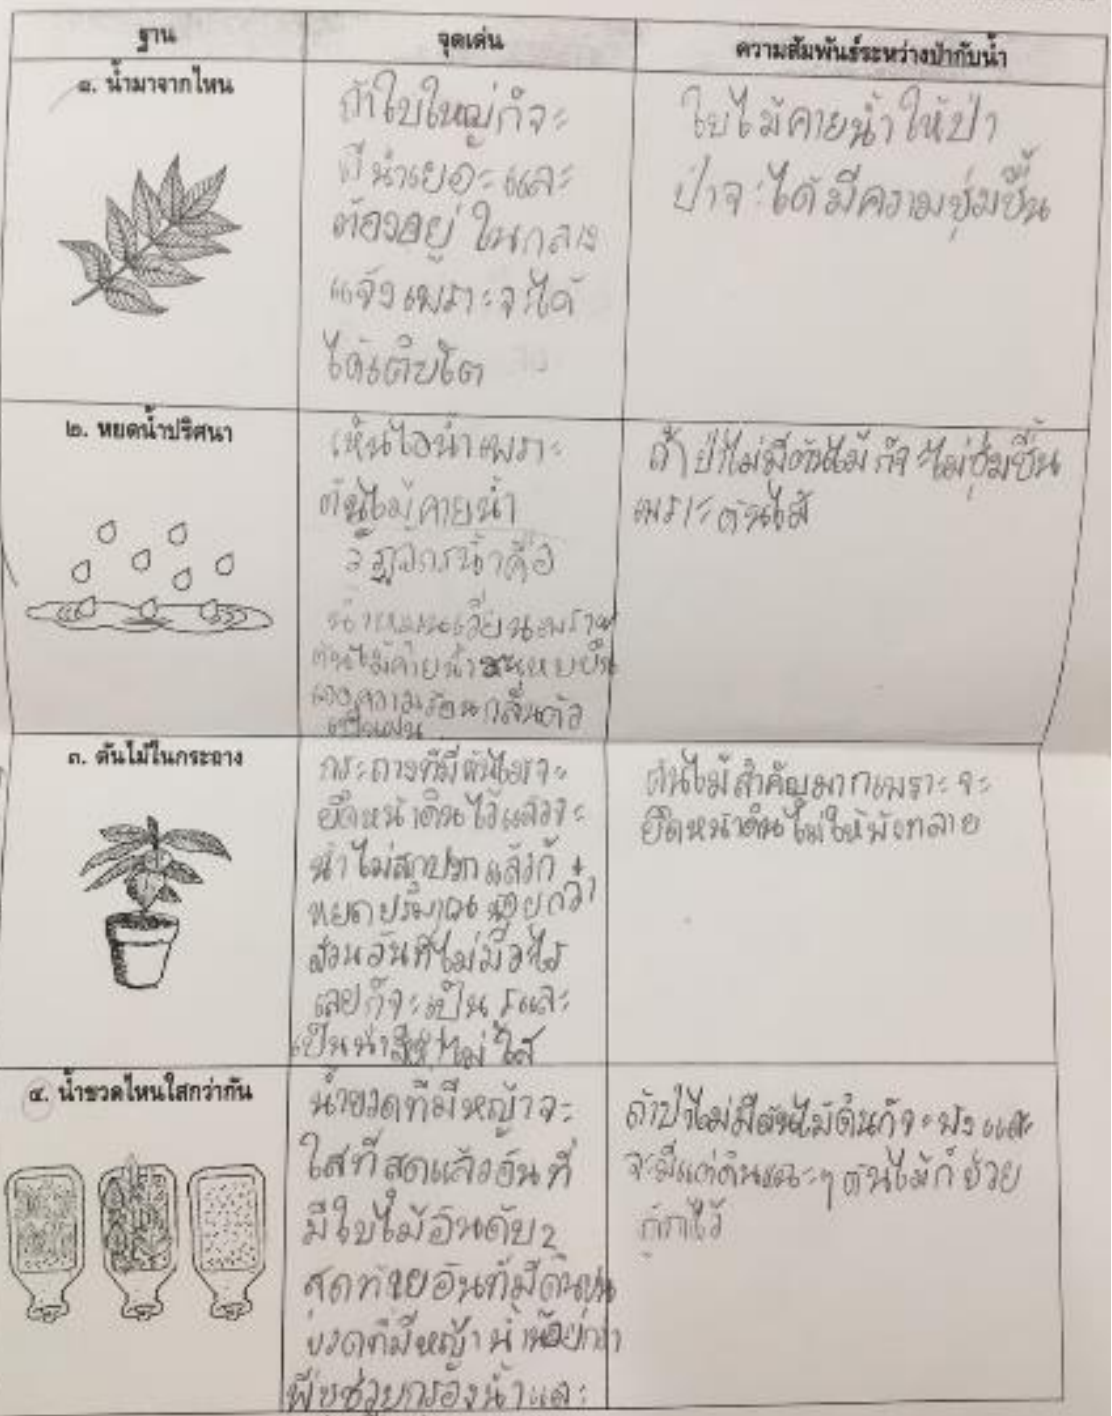 ฐาน
จุดเด่น
ความสัมพันธ์ระหว่างป่ากับน้ำ
๑. น้ำมาจากไหน
ถ้าใบใหญ่ก็จะ
มีน้ำเยอะและ
ต้องอยู่ในกลาง
แจ้งเพราะจะได้
ได้เติบโต
ใบไม้คายน้ำให้ป่า
ป่าจะได้มีความชุ่มชื้น
๒. หยดน้ำปริศนา
เห็นไอน้ำเพราะ
ต้นไม้คายน้ำ
วัฏจักรน้ำคือ
น้ำหมุนเวียนเพราะ
ต้นไม้คายน้ำ
ความร้อนกลั่นตัว
เป็นฝน
ถ้าป่าไม่มีต้นไม้ก็จะไม่ชุ่มชื้น
เพราะต้นไม้
๓. ต้นไม้ในกระถาง
กระถางที่มีต้นไม้จะ
ยึดหน้าดินไว้แล้วจะ
น้ำไม่สกปรกแล้วก็
หยดปริมาณน้อยกว่า
ส่วนอันที่ไม่มีอะไร
เลยก็จะเป็น
เป็นน้ำ ไม่ใส
ต้นไม้สำคัญมากเพราะจะ
ยึดหน้าดินไม่ให้พังทลาย
๔. น้ำขวดไหนใสกว่ากัน
น้ำขวดที่มีหญ้าจะ
ใสที่สุดแล้วอันที่
มีใบไม้อันดับ2
สุดท้ายอันที่มีดิน
ขวดที่มีหญ้าน้ำน้อยกว่า
พืชช่วยกรองน้ำและ
ถ้าป่าไม่มีต้นไม้ดินก็จะพังและ
จะมีแต่ดินแฉะๆต้นไม้ก็ช่วย